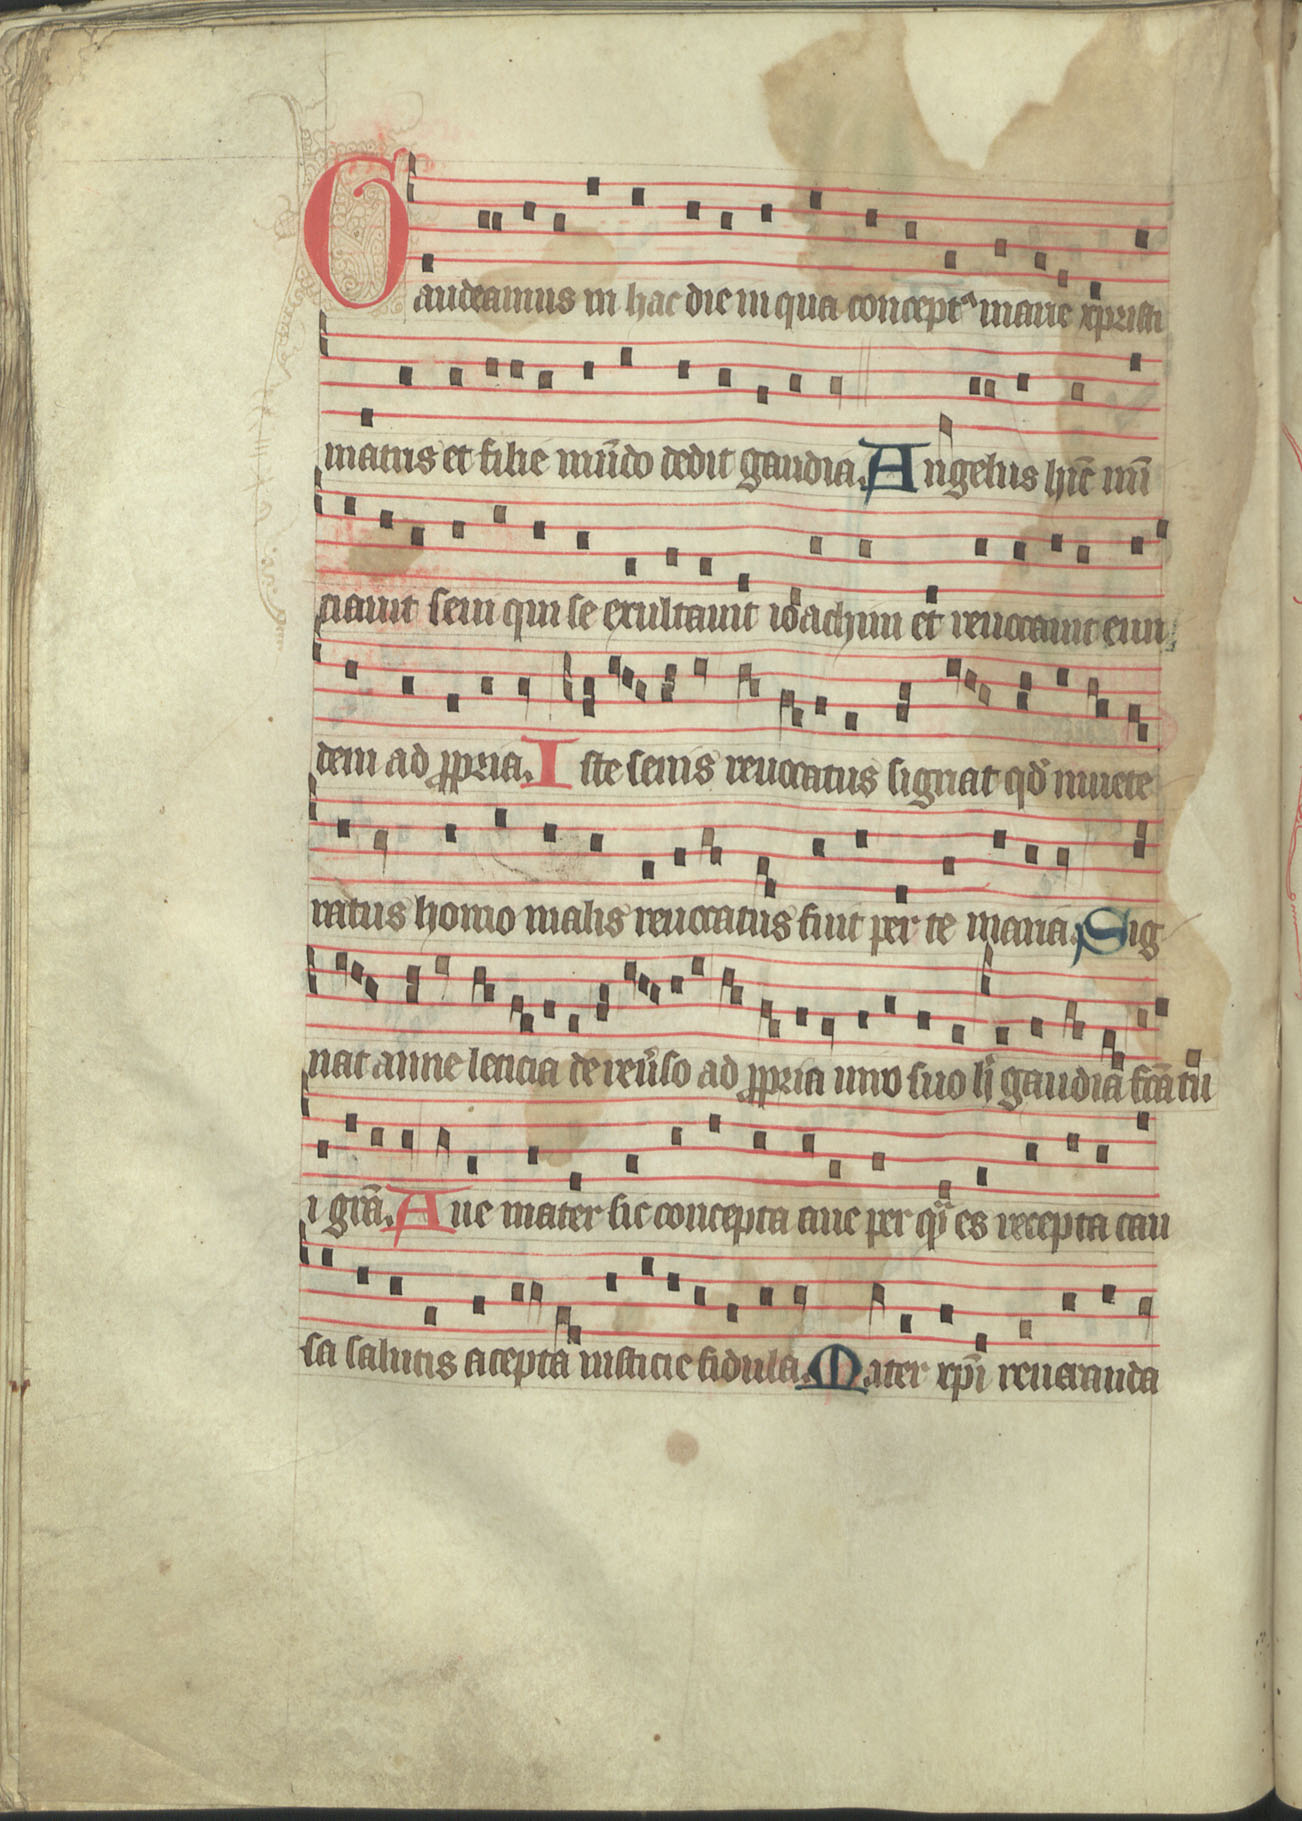 Gaudeamus in hac die in qua concepta marie xpristi
matris et filie mūdo dedit gaudia. Angelus hĩc nũ
ciauit seni qui se exultauit ioachim et reuocauit eun
dem ad ꝓpria. Iste senis reuocatus signat qd̃ inuete
ratus homo malis reuocatus fuit per te maria. Sig
nat anne leticia de reũso ad ꝓpria uiro suo gaudia fc̃a tu
i grã. Aue mater sic concepta aue per quã es recepta cau
sa salutis acepta iusticie fidula. Mater xp̃i reueranda